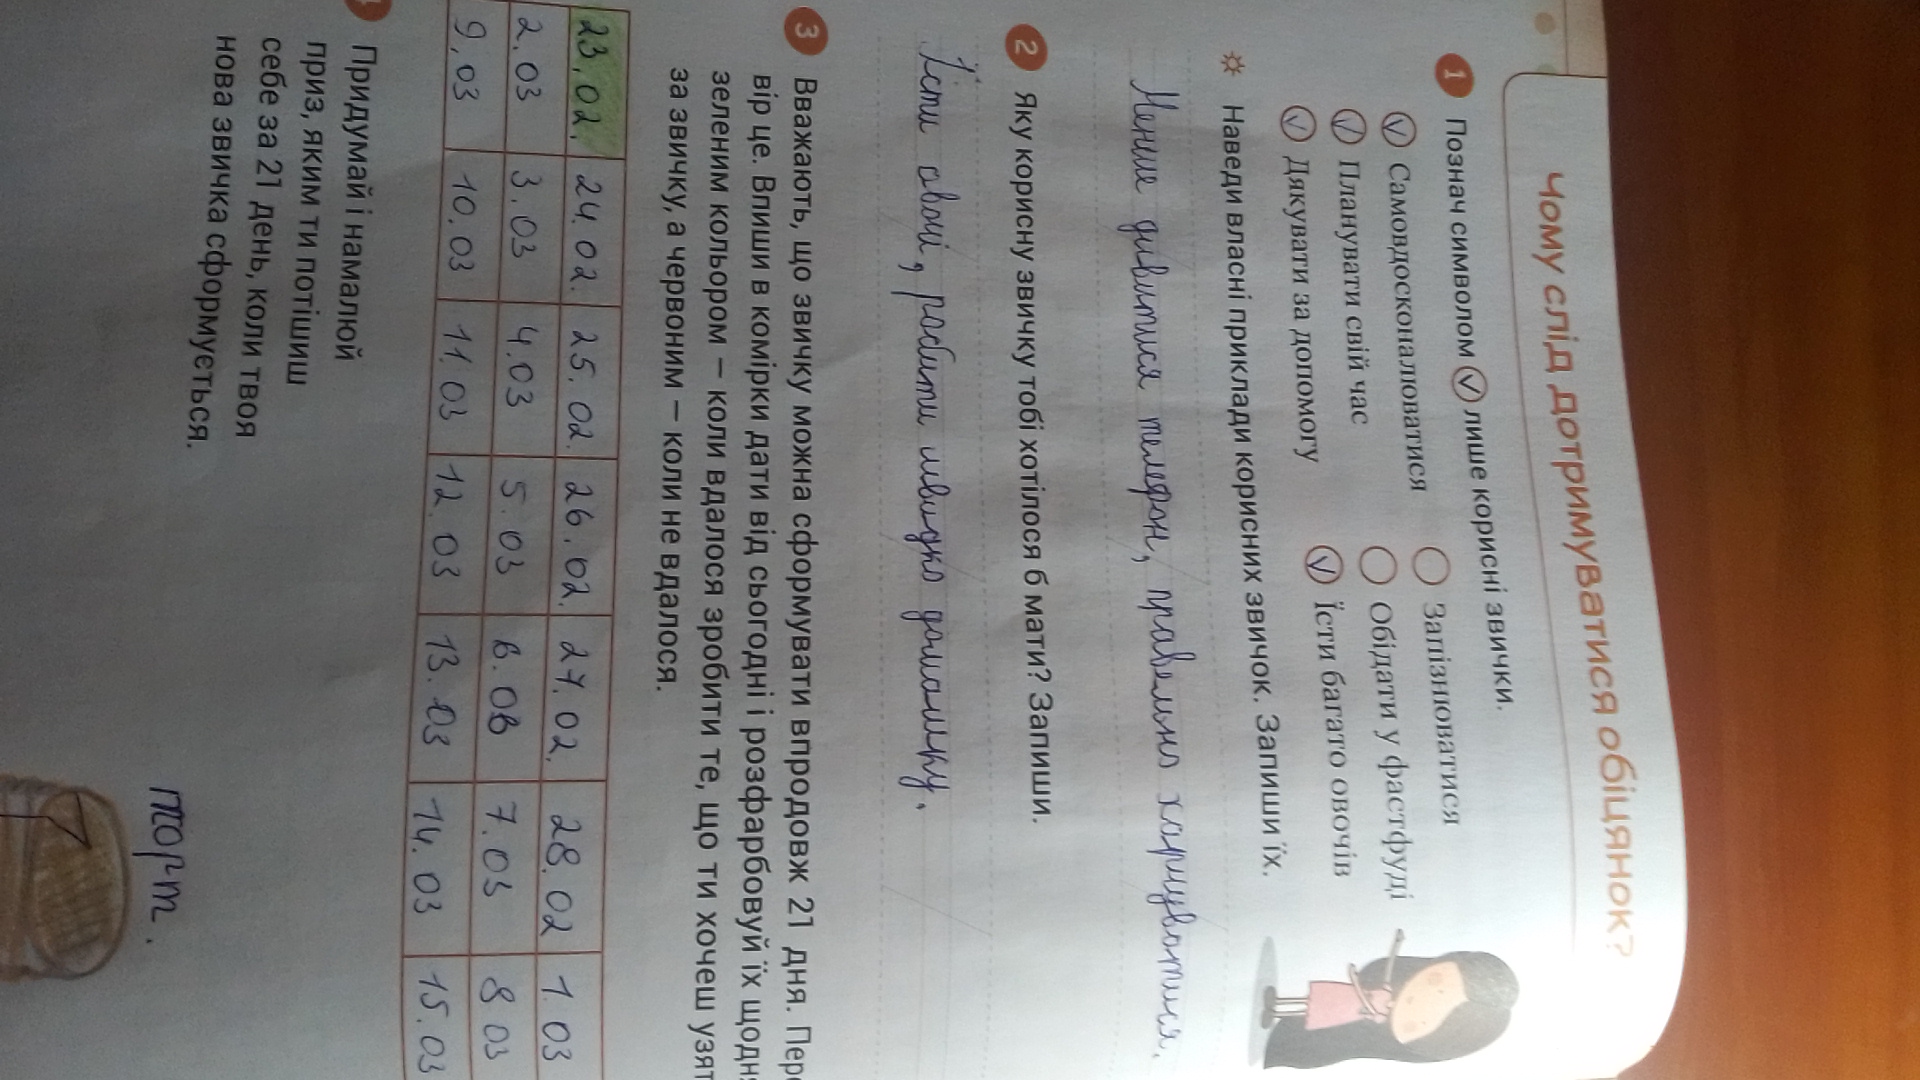 Чому слід дотримуватися обіцянок?
1 Познач символом V лише корисні звички.
V Самовдосконалюватися
V Планувати свій час
V Дякувати за допомогу
Запізнюватися
Обідати у фастфуді
V Їсти багато овочів
Наведи власні приклади корисних звичок. Запиши їх.
Менше дивитися телефон, правельно харчуватися.
2 Яку корисну звичку тобі хотілося б мати? Запиши.
Їсти овочі, робити швидко домашку.
3 Вважають, що звичку можна сформувати впродовж 21 дня. Пере
вір це. Впиши в комірки дати від сьогодні і розфарбовуй їх щодня
зеленим кольором – коли вдалося зробити те, що ти хочеш узят
за звичку, а червоним – коли не вдалося.
23.02. 24.02. 25.02. 26.02. 27.02. 28.02 1.03
2.03 3.03 4.03 5.03 6.03 7.03 8 03
9.03 10.03 11.03 12.03 13.03 14.03 15.03
Придумай і намалюй
приз, яким ти потішиш
себе за 21 день, коли твоя
нова звичка сформується.
торт.